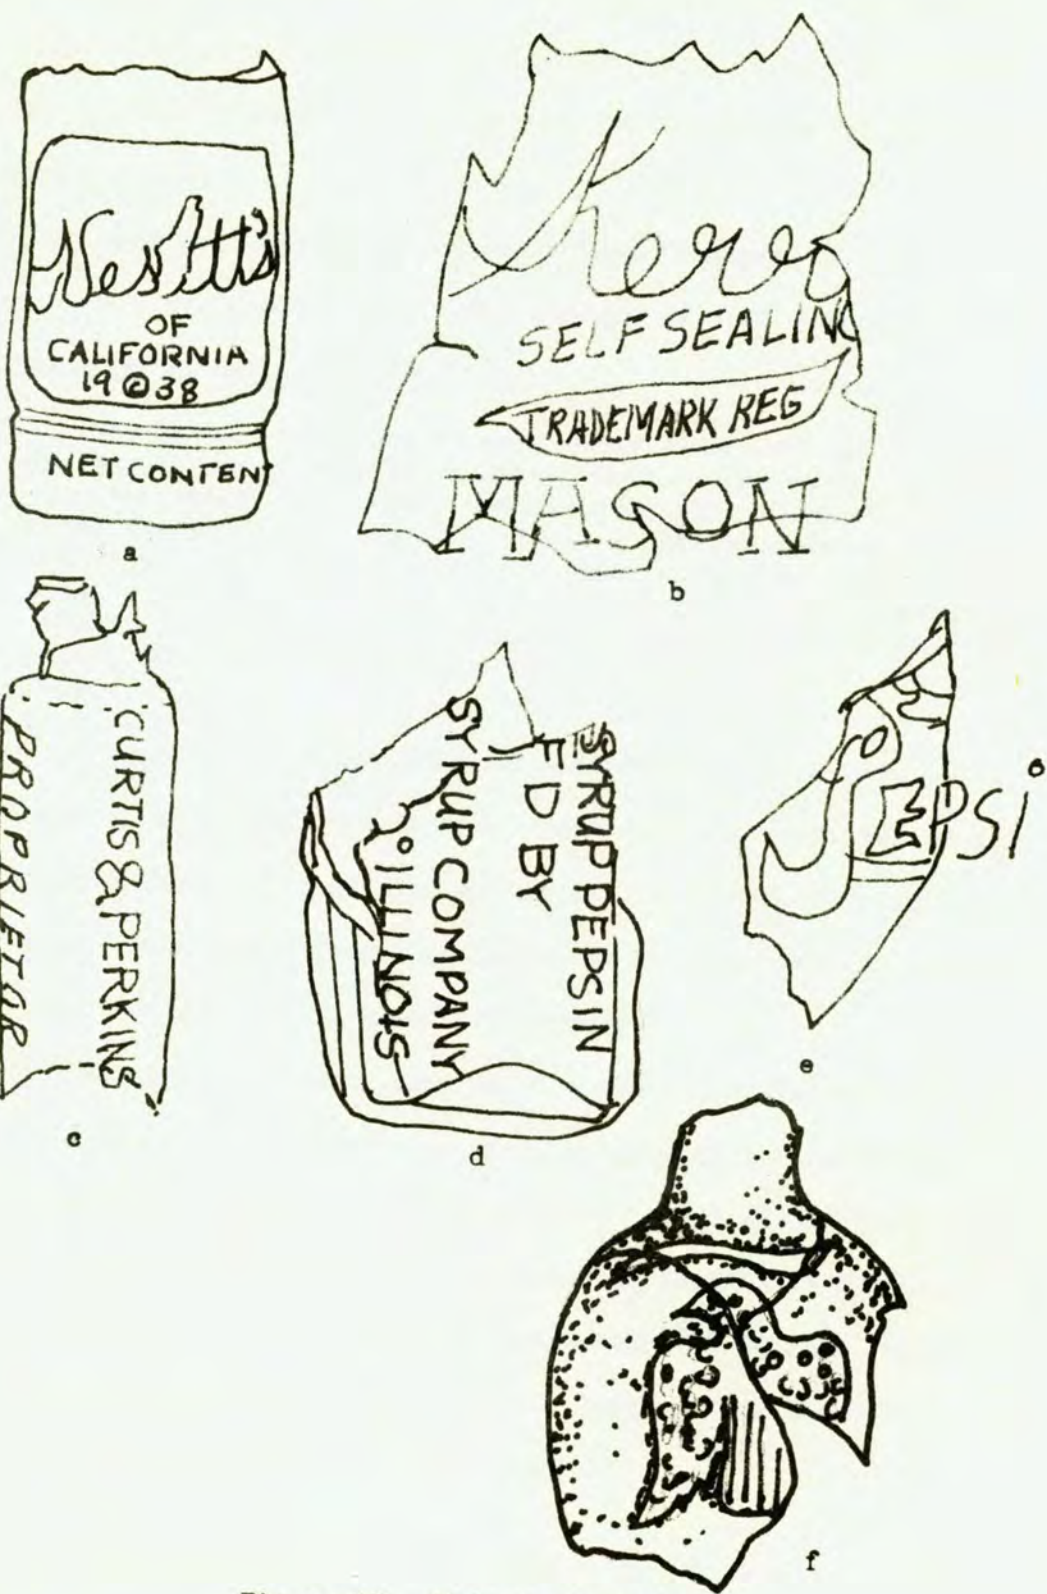 Nesbitt's
OF
CALIFORNIA
19©38
NET CONTENT
a
Kerr
SELF SEALING
TRADEMARK REG
MASON
b
CURTIS & PERKINS
PROPRIETOR
c
SYRUP PEPSIN
F D BY
SYRUP COMPANY
ILLINOIS
d
EPSI
e
f